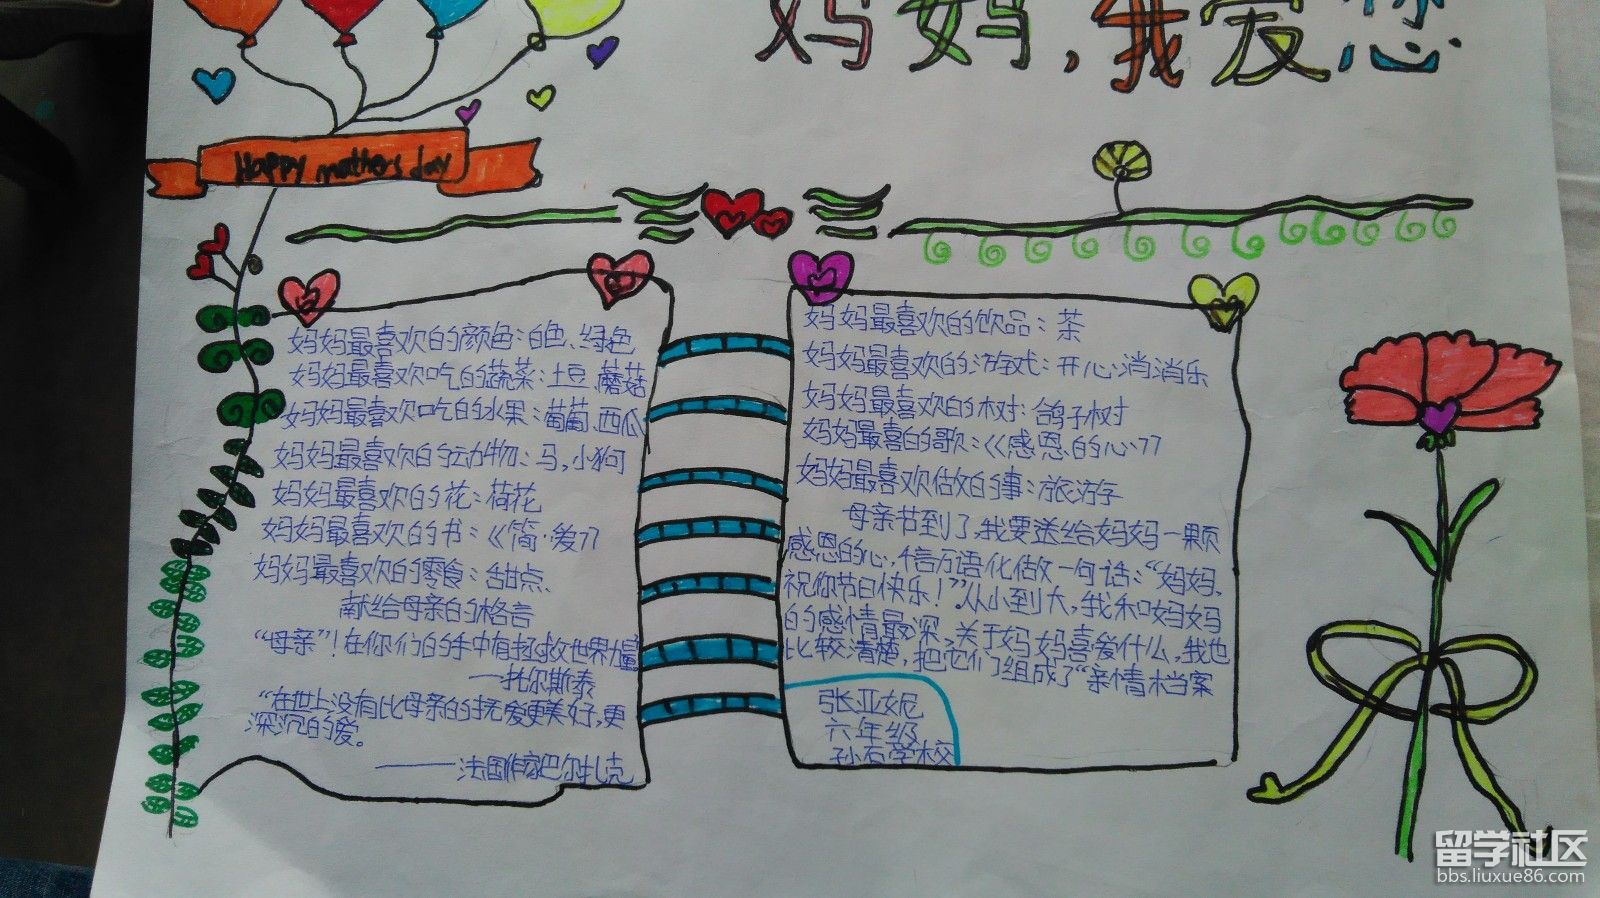 妈妈，我爱您
Happy mothers day
妈妈最喜欢的颜色：白色、绿色
妈妈最喜欢吃的蔬菜：土豆 蘑菇
妈妈最喜欢吃的水果：葡萄 西瓜
妈妈最喜欢的动物：马，小狗
妈妈最喜欢的花：荷花
妈妈最喜欢的书：《简·爱》
妈妈最喜欢的零食：甜点
献给母亲的格言
“母亲”！在你们的手中有拯救世界力量
——托尔斯泰
“在世上没有比母亲的慈爱更美好，更
深沉的爱。
——法国作家巴尔扎克
妈妈最喜欢的饮品：茶
妈妈最喜欢的游戏：开心消消乐
妈妈最喜欢的树：鸽子树
妈妈最喜的歌：《感恩的心》
妈妈最喜欢做的事：旅游
母亲节到了，我要送给妈妈一颗
感恩的心，千言万语化做一句话：“妈妈，
祝你节日快乐！”从小到大，我和妈妈
的感情最深，关于妈妈喜爱什么，我也
比较清楚，把它们组成了“亲情档案
张亚妮
六年级
孙石学校
留学社区
bbs.liuxue86.com